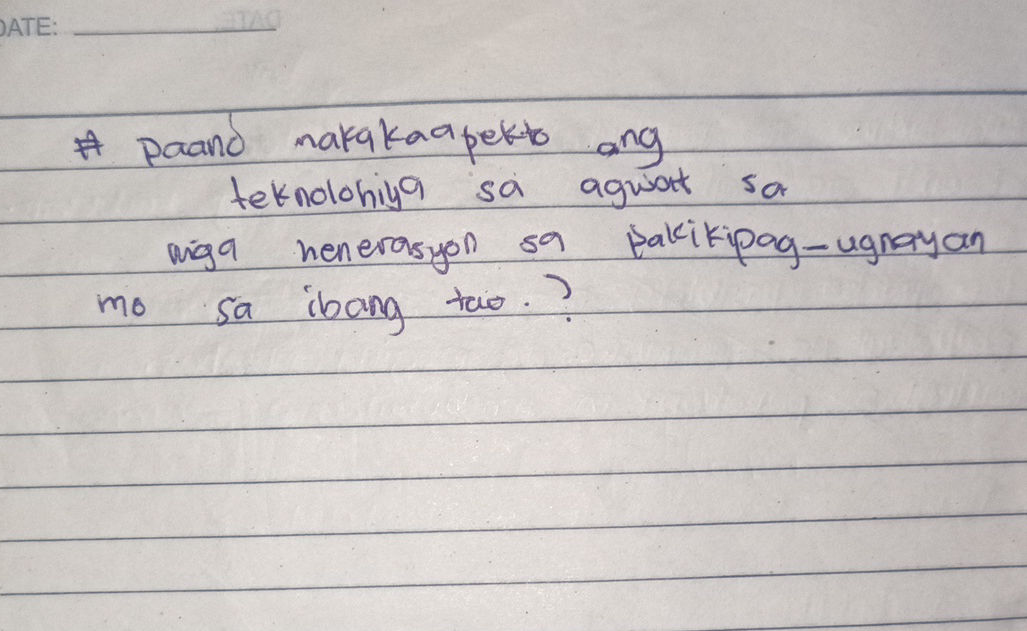 DATE:
# Paano makakaapekto ang
teknolohiya sa agwat sa
mga henerasyon sa pakikipag-ugnayan
mo sa ibang tao.?